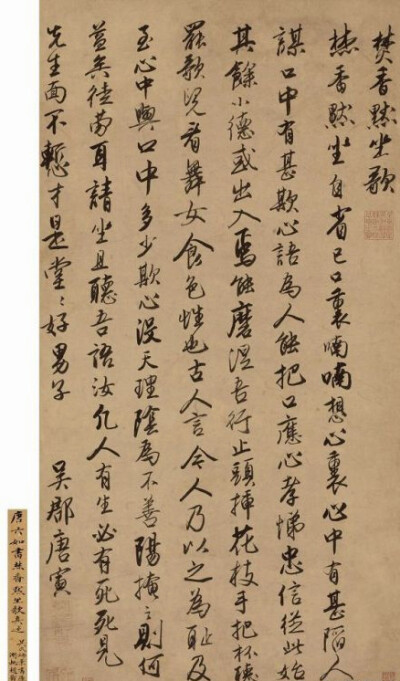 焚香默坐歌
焚香默坐自省己口裏喃喃想心裏心中有甚陷人
謀口中有甚欺心語為人能把口應心孝悌忠信從此始
其餘小德或出入焉能磨涅吾行止頭插花枝手把杯聽
罷歌兒看舞女食色性也古人言今人乃以之為耻及
至心中與口中多少欺心没天理陰為不善陽掩之則何
益矣徒勞耳請坐且聽吾語汝凡人有生必有死死見
先生面不慙才是堂〻好男子 吳郡唐寅
唐六如書焚香默坐歌真迹